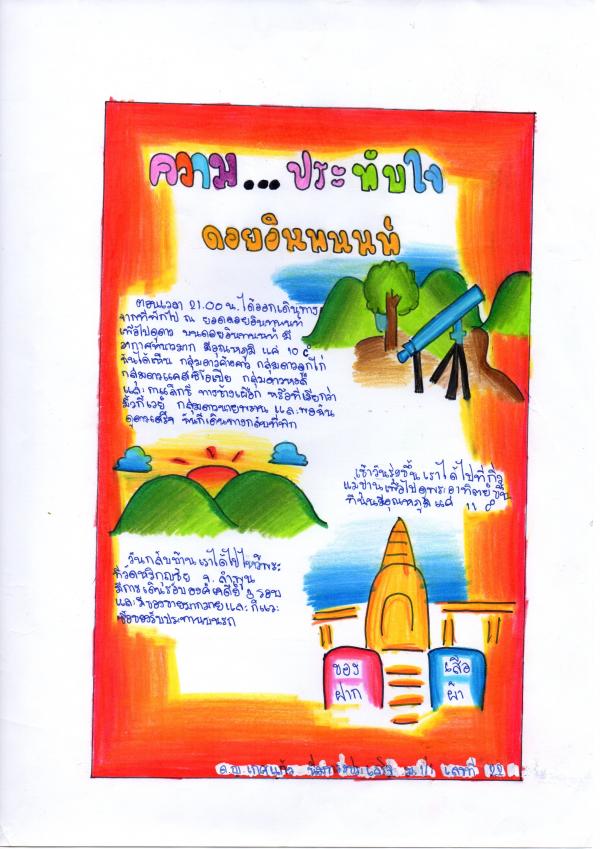 ความ...ประทับใจ
ดอยอินทนนท์
ตอนเวลา 21.00 น. ได้ออกเดินทาง
จากที่พักไป ณ ยอดดอยอินทนนท์
เพื่อไปดูดาว บนดอยอินทนนท์ มี
อากาศหนาวมาก มีอุณหภูมิ แค่ 10 c°
ฉันได้เห็น กลุ่มดาวค้างคาว กลุ่มดาวลูกไก่
กลุ่มดาวแคสซิโอเปีย กลุ่มดาวหงส์
และกาแล็กซี่ ทางช้างเผือก หรือที่เรียกว่า
มิ้วกี้เวย์ กลุ่มดาวนายพราน และพอฉัน
ดูดาวเสร็จ ฉันก็เดินทางกลับที่พัก
เช้าวันรุ่งขึ้นเราได้ไปที่กิ่ว
แม่ปานเพื่อไปดูพระอาทิตย์ขึ้น
ที่นั่นมีอุณหภูมิ แค่ 11 c°
วันกลับบ้านเราได้ไปไหว้พระ
ที่วัดหริภุญชัย จ. ลำพูน
มีการเดินรอบองค์เจดีย์ 3 รอบ
และมีของขายมากมายและก็แวะ
ซื้อของรับประทานบนรถ
ของ
ฝาก
เสื้อ
ผ้า
ด.ญ. เลขที่ 22